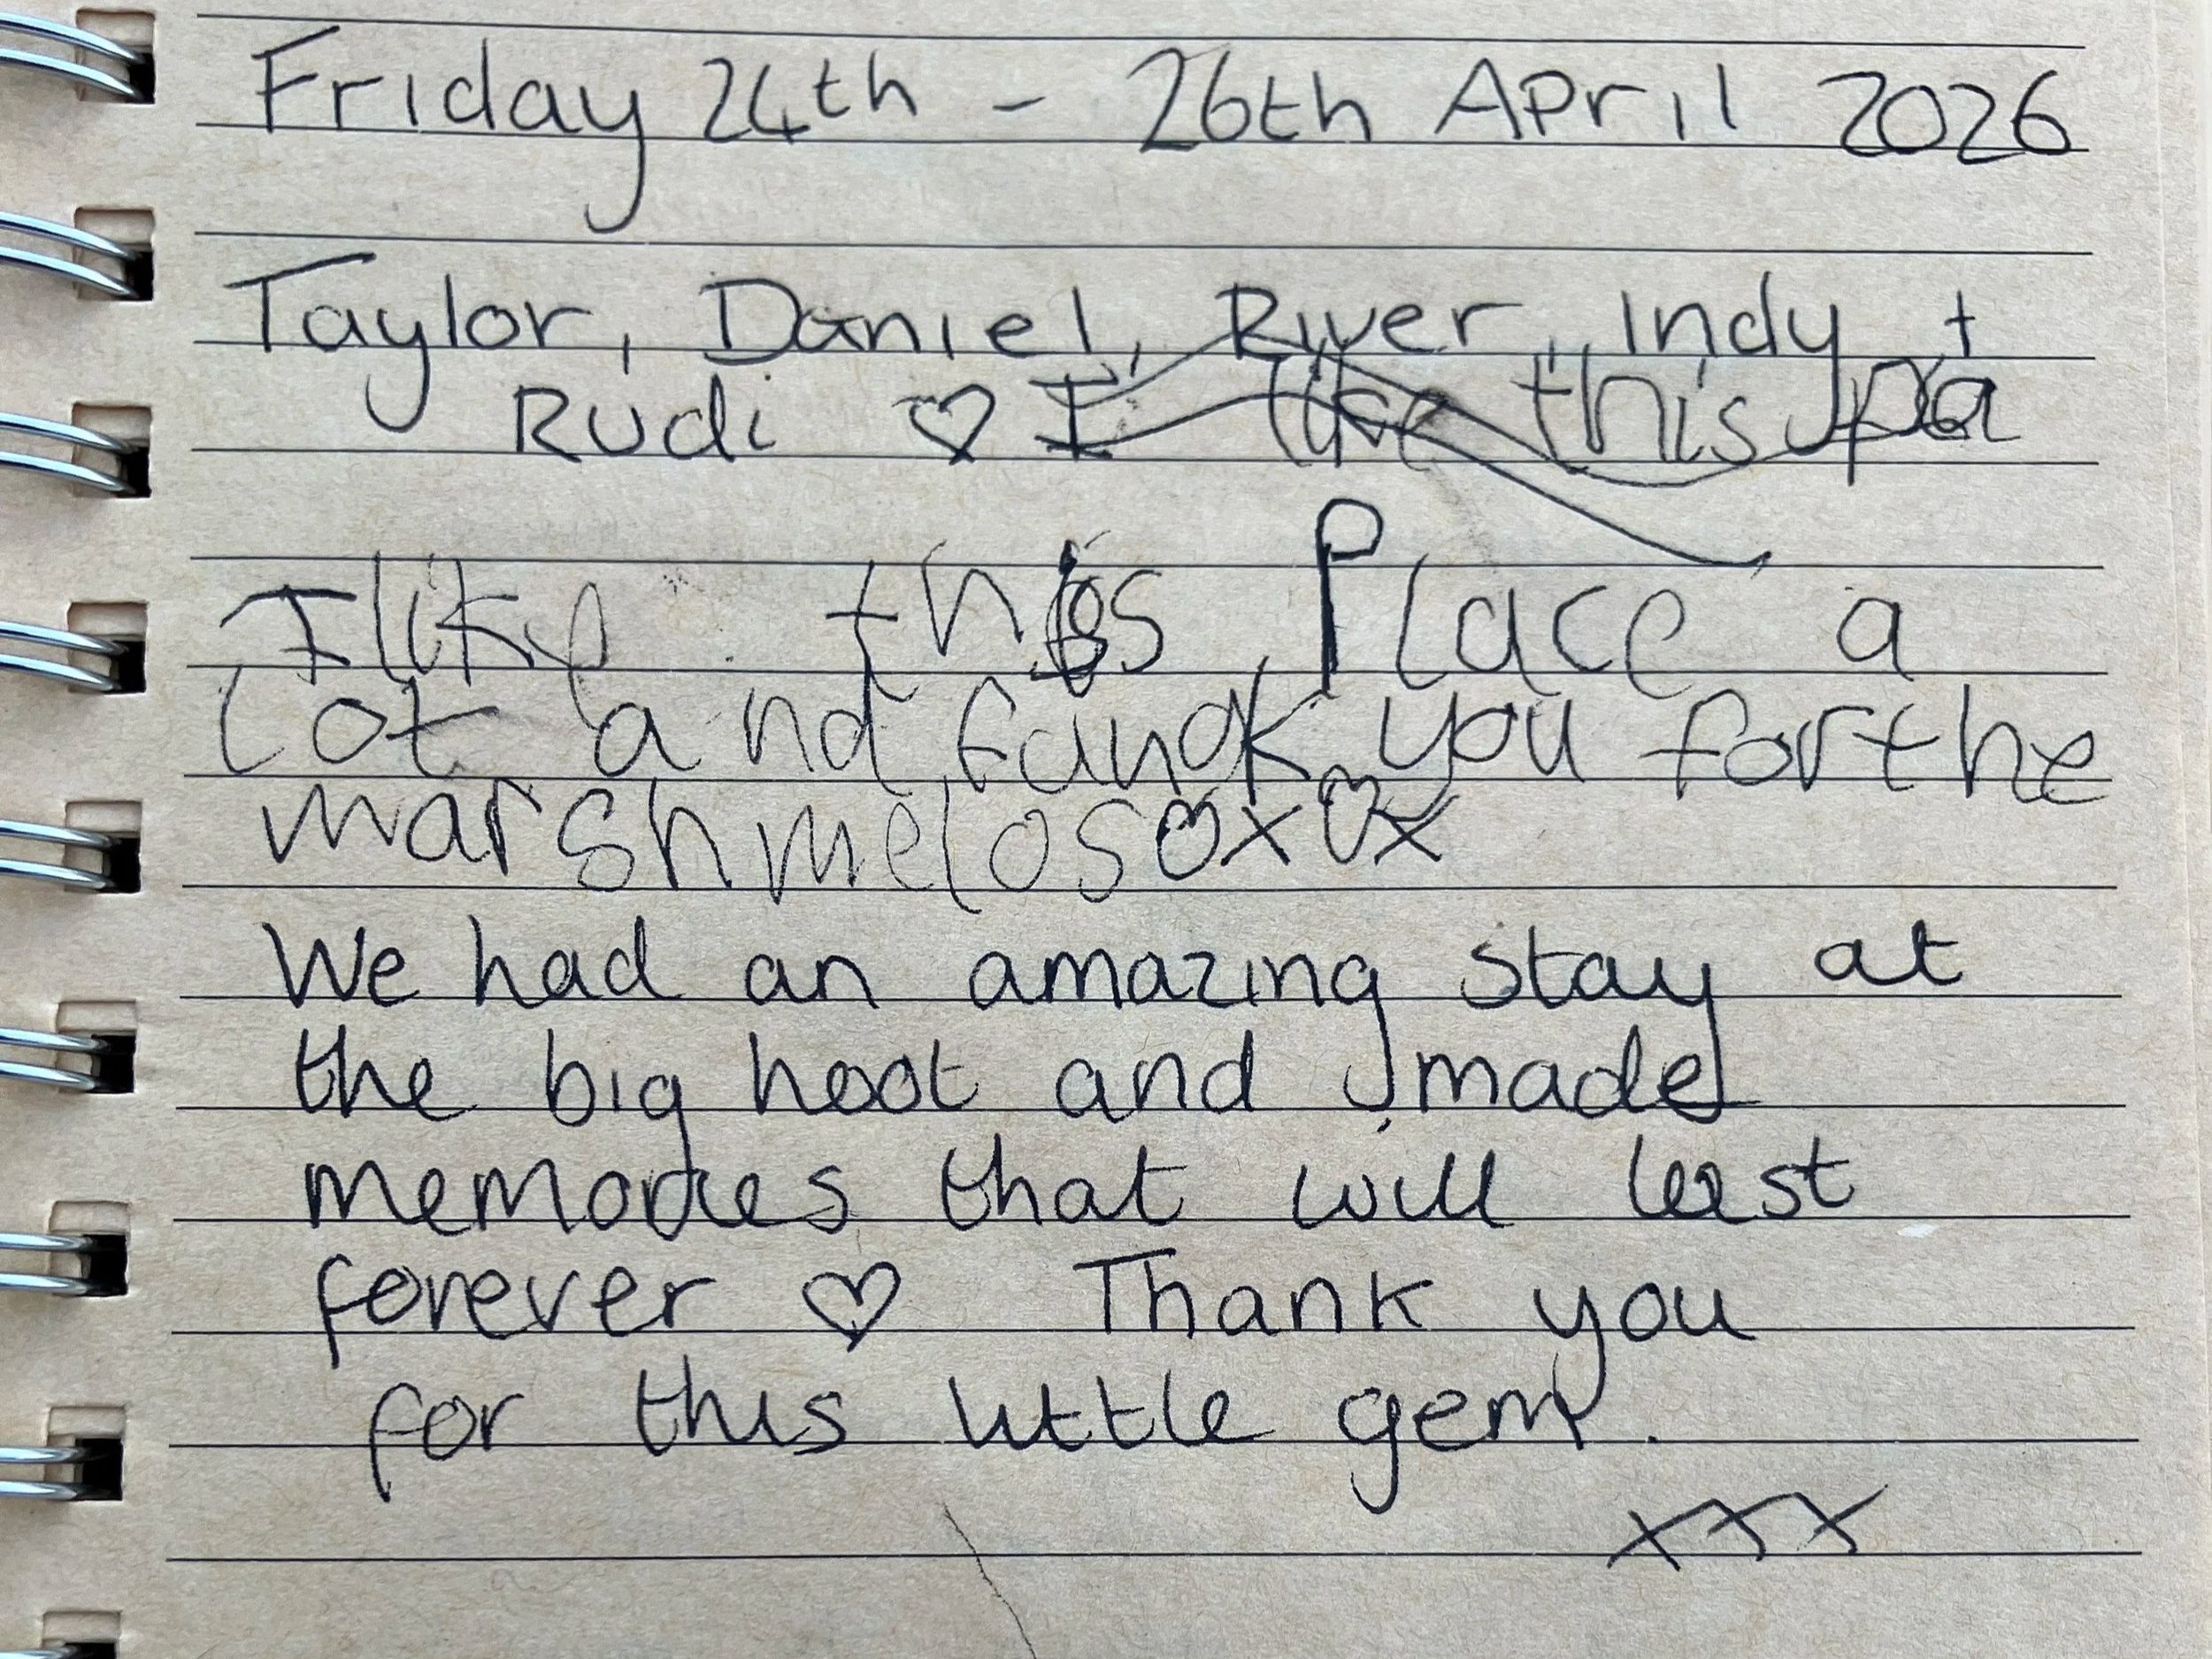 Friday 24th - 26th April 2026
Taylor, Daniel, River, Indy +
Rudi ♡ I like this pa
I like this Place a
lot and fangk you for the
marshmelos ♡x♡x
We had an amazing stay at
the big hoot and made
memories that will last
forever ♡ Thank you
for this little gem.
xxx